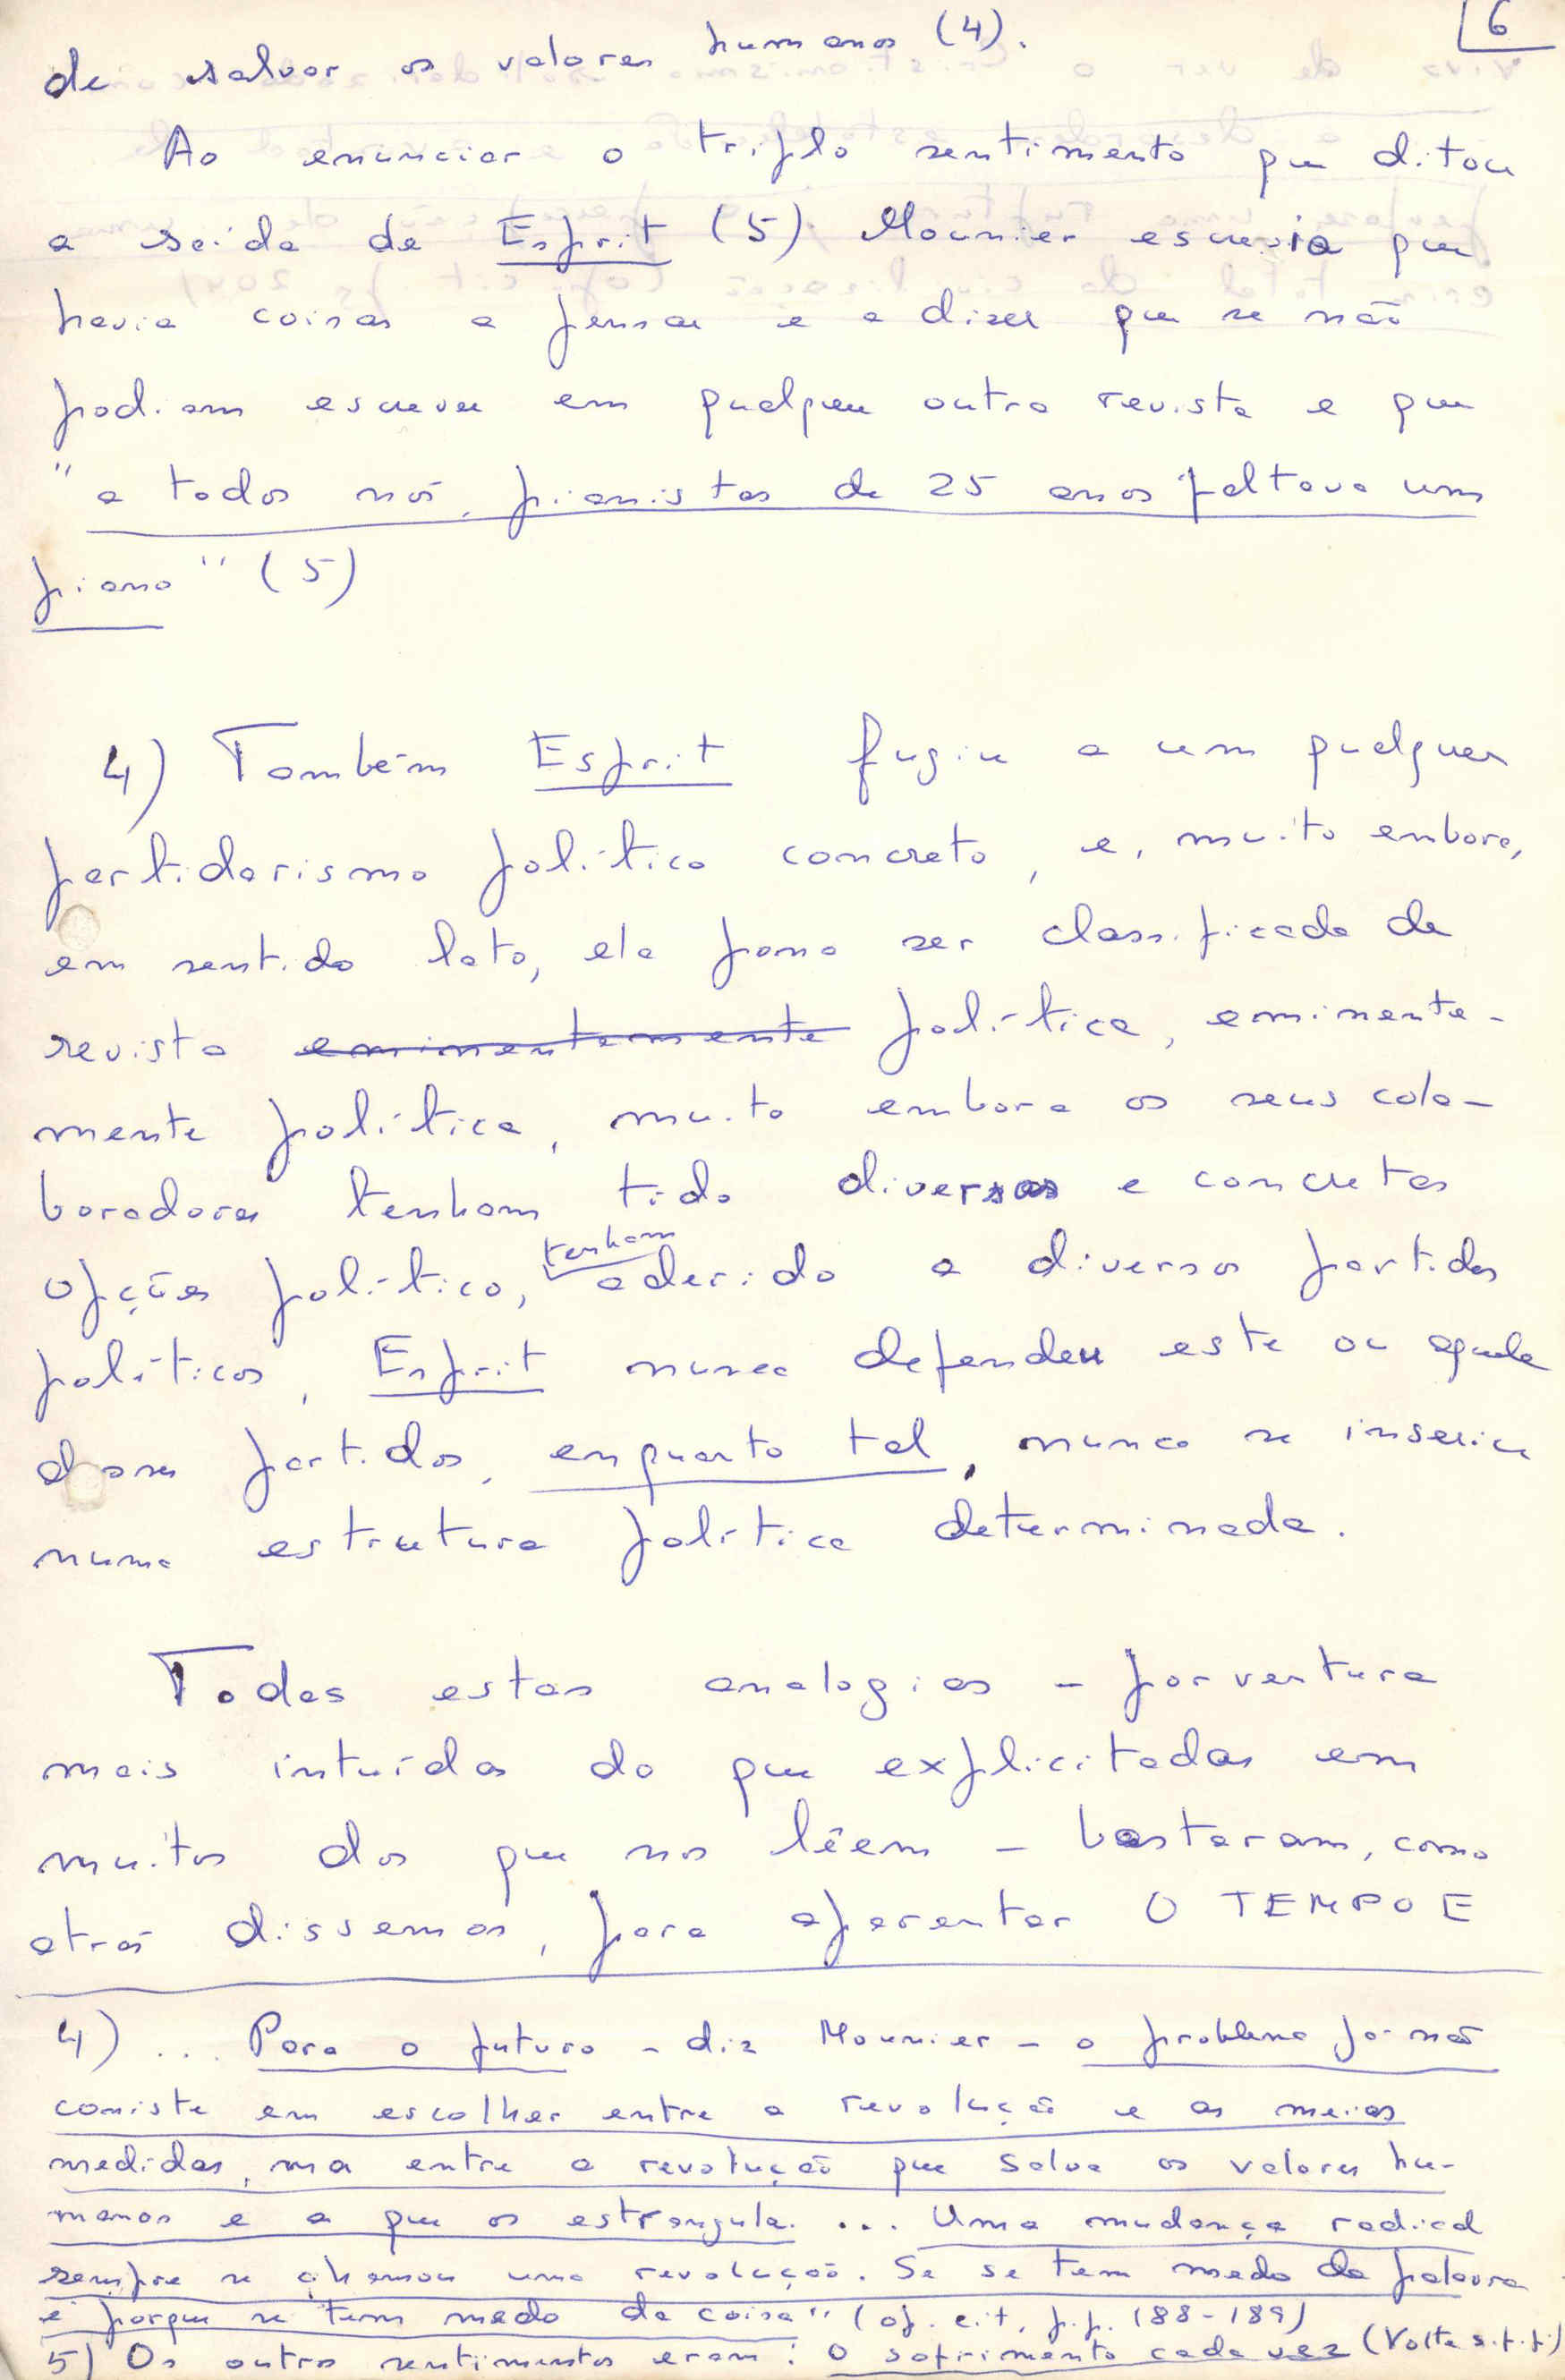 6
de salvar os valores humanos (4).
Ao enunciar o triplo sentimento que ditou
a saída de Esprit (5) Mounier escrevia que
havia coisas a pensar e a dizer que se não
podiam escrever em qualquer outra revista e que
"a todos nós, pianistas de 25 anos faltava um
piano" (5)
4) Também Esprit fugiu a um qualquer
partidarismo político concreto, e, muito embora,
em sentido lato, ela possa ser classificada de
revista eminentemente política, eminente-
mente política, muito embora os seus cola-
boradores tenham tido diversas e concretas
opções político, tenham aderido a diversos partidos
políticos, Esprit nunca defendeu este ou aquele
desses partidos, enquanto tal, nunca se inseriu
numa estrutura política determinada.
Todas estas analogias - porventura
mais intuídas do que explicitadas em
muitos dos que nos lêem - bastaram, como
atrás dissemos, para aparentar O TEMPO E
4) ... Para o futuro - diz Mounier - o problema já não
consiste em escolher entre a revolução e as meias
medidas, mas entre a revolução que salva os valores hu-
manos e a que os estrangula. ... Uma mudança radical
sempre se chamou uma revolução. Se se tem medo da palavra
é porque se tem medo da coisa" (op. cit, p.p. 188-189)
5) Os outros sentimentos eram: o sofrimento cada vez (Volte s.f.f.)